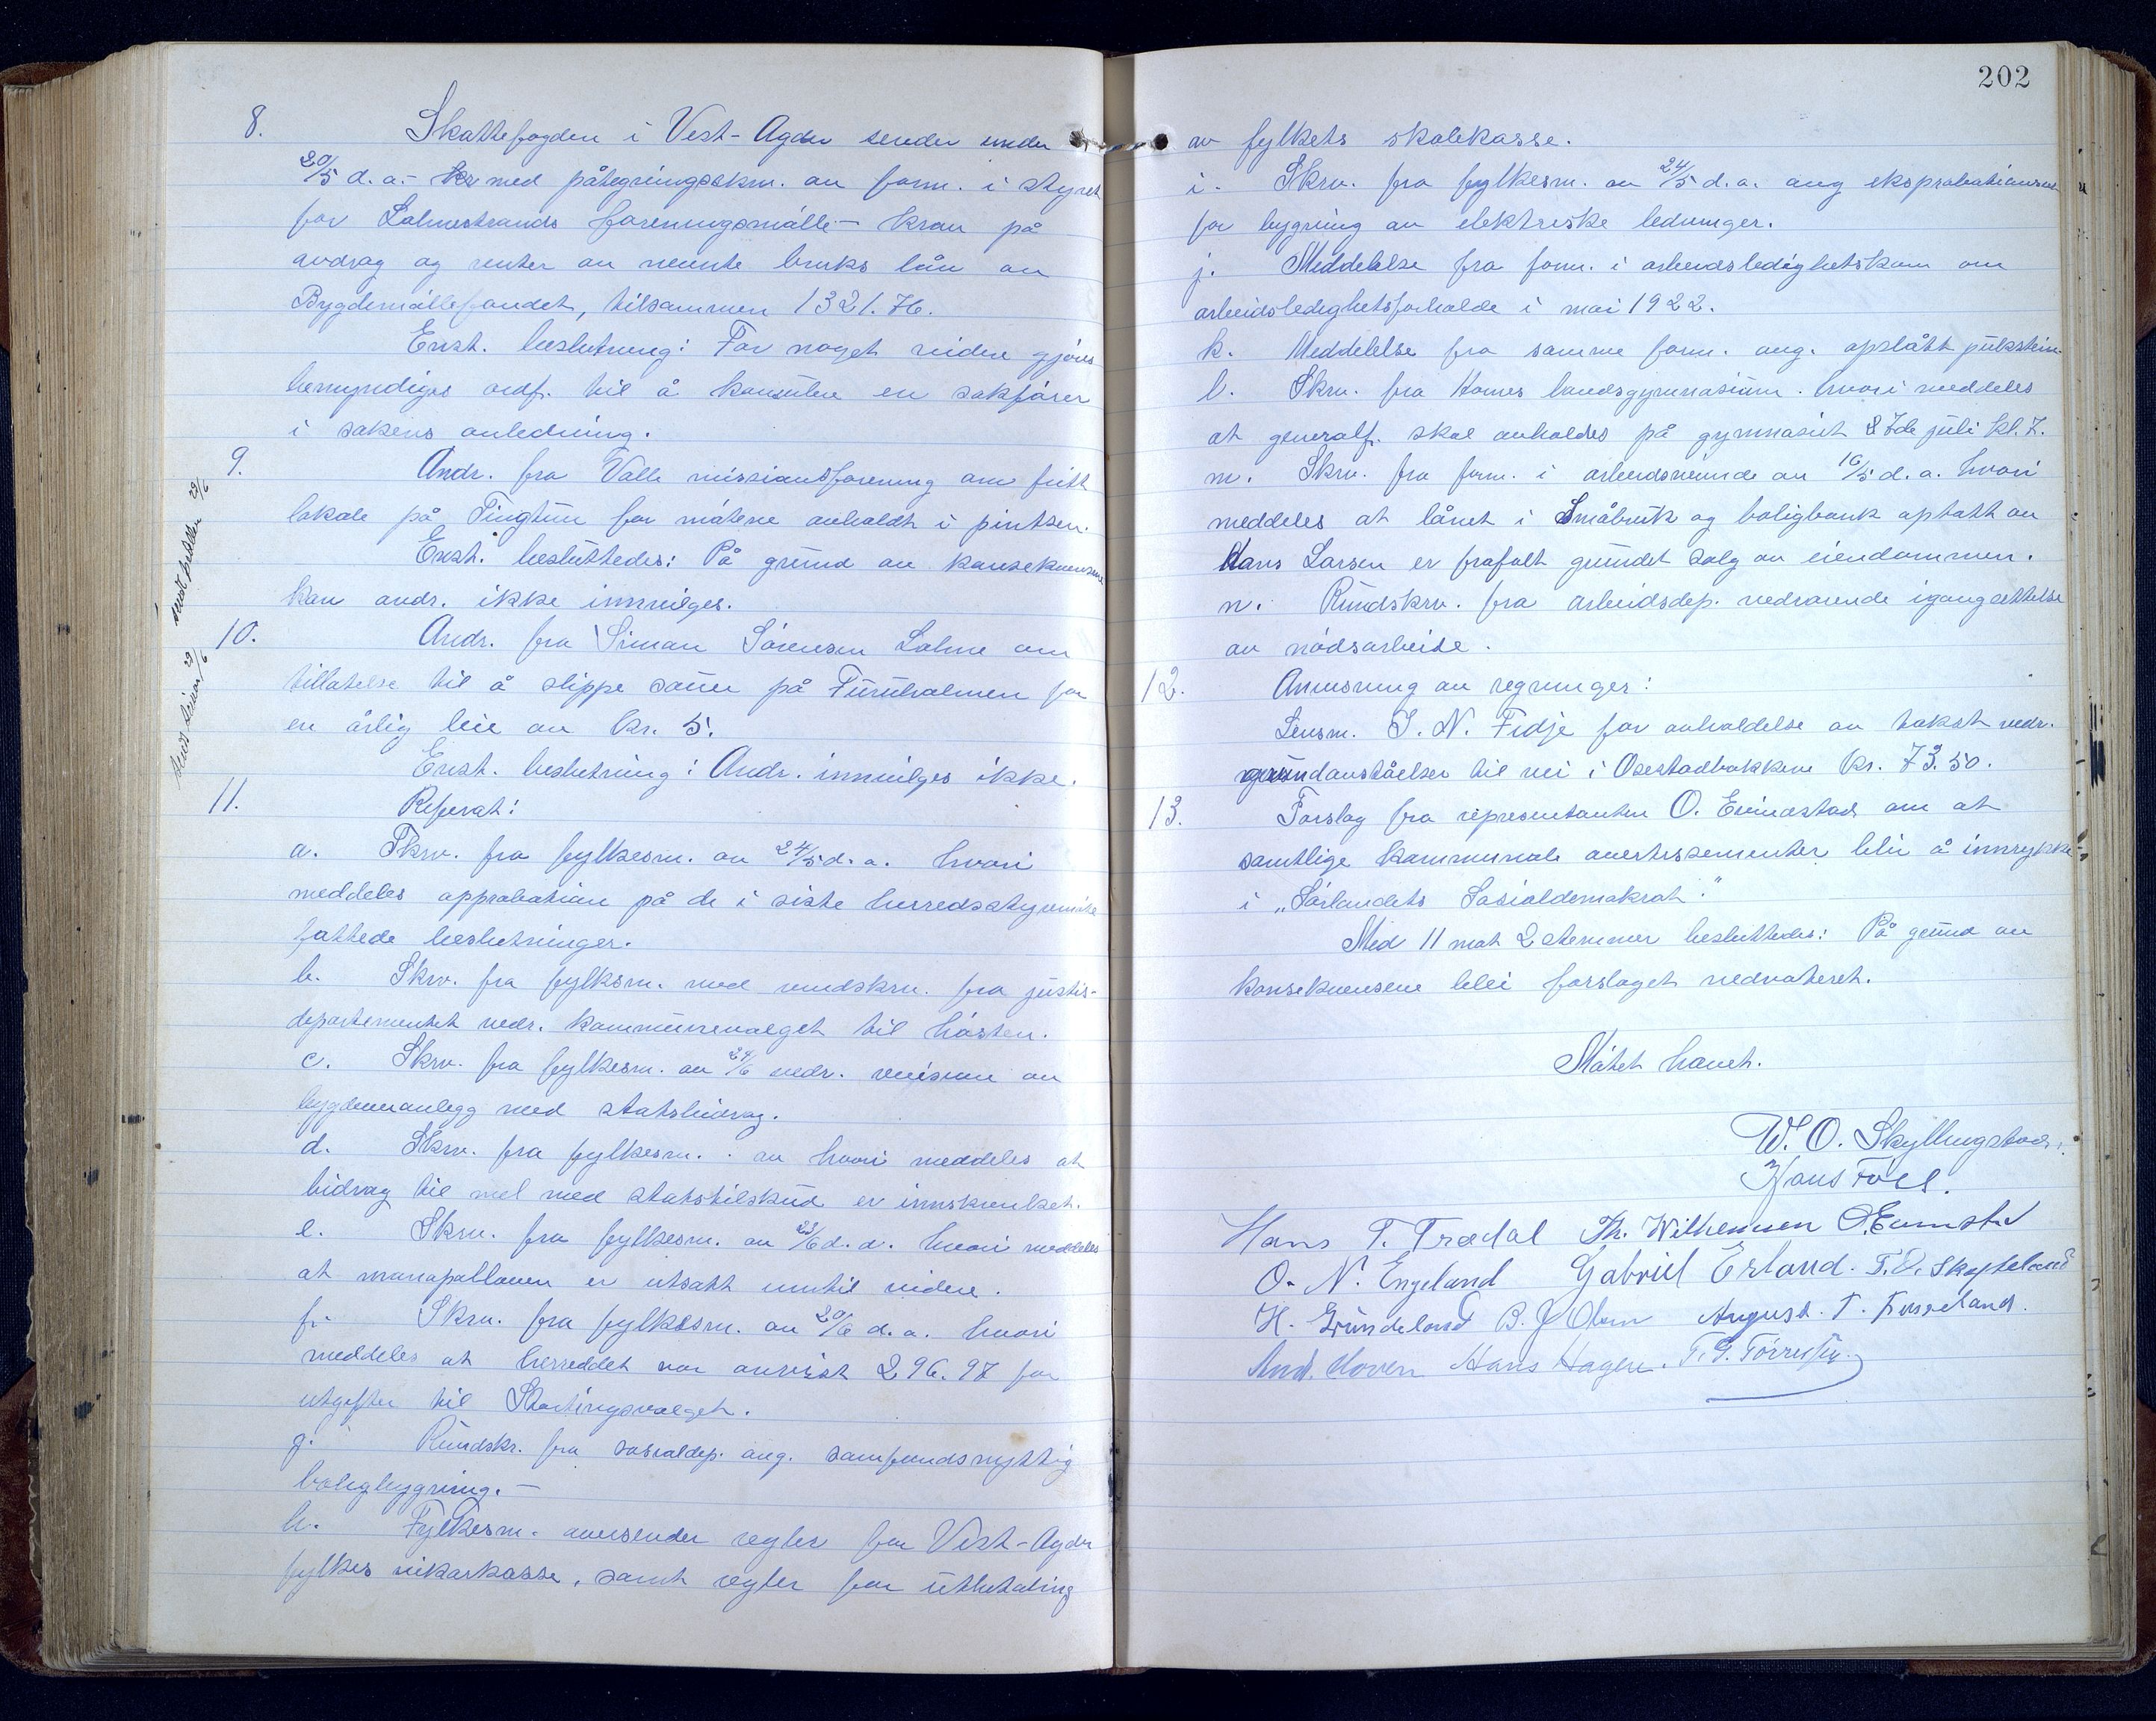 8. Skattefogden i Vest-Agder sender under
20/5 d.a. med påtegningsskrv. av form. i styret
for Lohnestrands foreningsmølle - krav på
avdrag og renter av nevnte bruks lån av
Bygdemøllefondet, tilsammen 1321.76.
Enst. beslutning: Før noget videre gjøres
bemyndiges ordf. til å konsulere en sakfører
i sakens anledning.
9. Andr. fra Valle missionsforening om fritt
lokale på Tingtun for møtene avholdt i pintsen.
Enst. besluttedes: På grund av konsekvensene
kan andr. ikke innvilges.
sendt 29/6
10. Andr. fra Simon Sørensen Lohne om
tillatelse til å slippe sauer på Furuholmen for
en årlig leie av kr. 5.
Enst. beslutning: Andr. innvilges ikke.
Sendt Simon 29/6
11. Referat:
a. Skrv. fra fylkesm. av 24/5 d.a. hvori
meddeles approbation på de i siste herredsstyremøte
fattede beslutninger.
b. Skrv. fra fylkesm. med rundskrv. fra justis-
departementet vedr. kommunevalget til høsten.
c. Skrv. fra fylkesm. av 24/6 vedr. revision av
bygdeveianlegg med statsbidrag.
d. Skrv. fra fylkesm. av hvori meddeles at
bidrag til mel med statstilskud er innskrenket.
e. Skrv. fra fylkesm. av 23/6 d.a. hvori meddeles
at monopolloven er utsatt inntil videre.
f. Skrv. fra fylkesm. av 20/6 d.a. hvori
meddeles at herreddet var anvist 296.97 for
utgifter til Stortingsvalget.
g. Rundskr. fra sosialdep. ang. samfundsnyttig
boligbygning. -
h. Fylkesm. oversender regler for Vest-Agder
fylkes vikarkasse, samt regler for utbetaling
202
av fylkets skolekasse.
i. Skrv. fra fylkesm. av 24/5 d.a. ang ekspropriationsret
for bygning av elektriske ledninger.
j. Meddelelse fra form. i arbeidsledighetskom om
arbeidsledighetsforholde i mai 1922.
k. Meddelelse fra samme form. ang. opslått pukstein.
l. Skrv. fra Hornes landsgymnasium. hvori meddeles
at generalf. skal avholdes på gymnasiet 7de juli kl. 7.
m. Skrv. fra form. i arbeidsnemnde av 16/5 d.a. hvori
meddeles at lånet i Småbruk og boligbank optatt av
Hans Larsen er frafalt grundet salg av eiendommen.
n. Rundskrv. fra arbeidsdep. vedrørende igangsettelse
av nødsarbeide.
12. Anvisning av regninger:
Lensm. S. N. Fidje for avholdelse av takst vedr.
grundavståelser til vei i Osestadbakkene kr. 73.50.
13. Forslag fra representanten O. Eivindstad om at
samtlige kommunale avertissementer blir å innrykke
i „Sørlandets Sosialdemokrat."
Med 11 mot 2 stemmer besluttedes: På grund av
konsekvensene blei forslaget nedvoteret.
Møtet hævet.
W. O. Skyllingstad.
Hans Foss.
Hans T. Trædal Th. Wilhemsen O. Eivinstad
O. N. Engeland Gabriel Erland. T. O. Skofteland
H. Grundeland B. J Olsen August. T.
And. Hoven Hans Hagen. T. G. Tørresen.